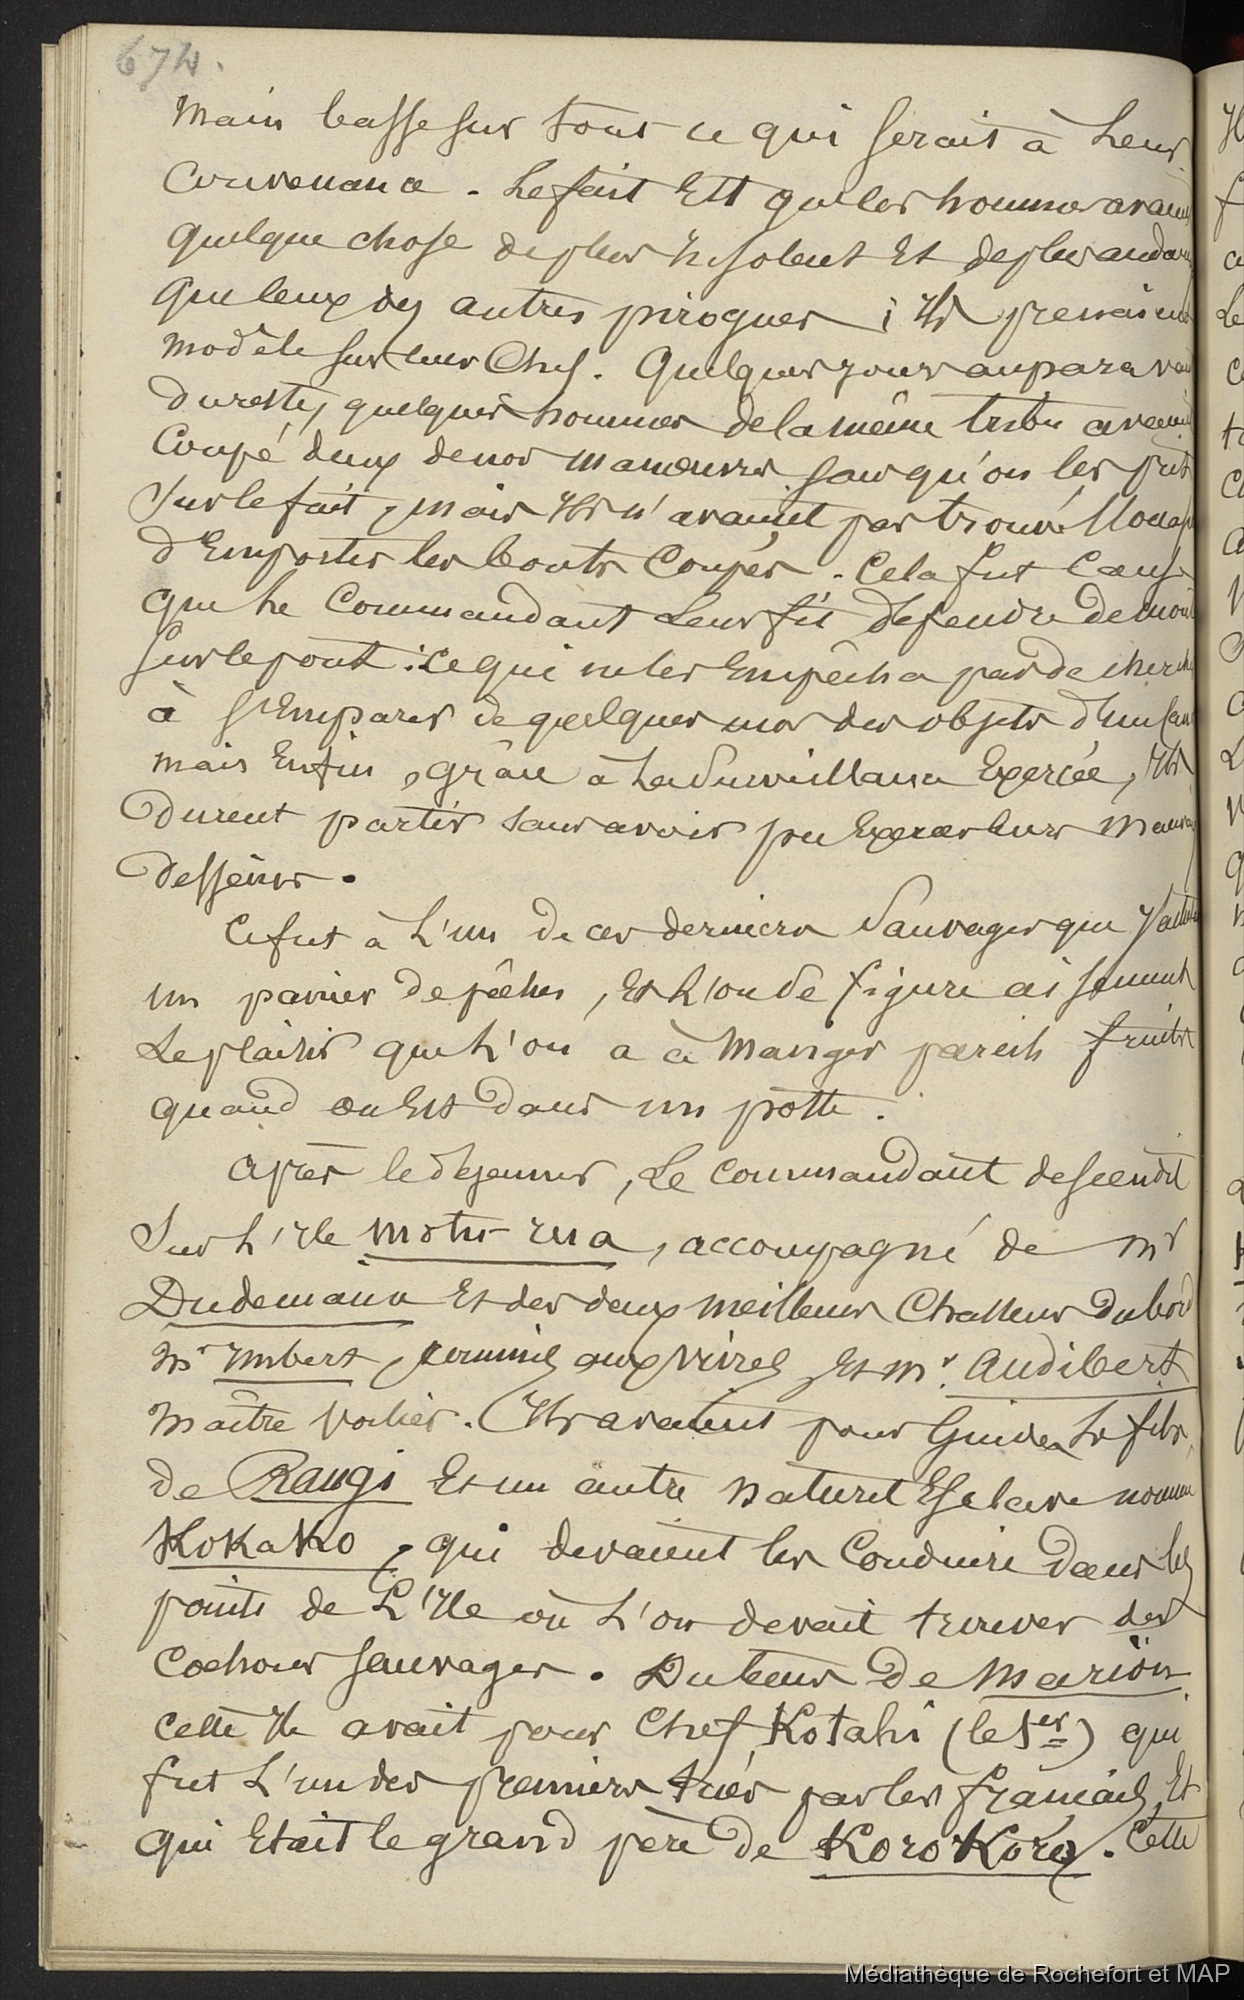 674.
main basse sur tout ce qui serait à Leur
Convenance. Le fait Est que les hommes avaient
quelque chose de plus Insolent Et de plus audacieux
que Ceux des autres pirogues ; Ils prenaient
modèle sur leur Chef. Quelques jours auparavant
du reste, quelques hommes de la même tribu avaient
Coupé deux de nos manœuvres sans qu'on les prit
Sur le fait, mais Ils n'avaient pas trouvé Moyen
d'Emporter les bouts Coupés. Cela fut Cause
que Le Commandant Leur fit défendre de monter
Sur le pont : ce qui ne les Empêcha pas de chercher
à s'Emparer de quelques uns des objets d'en face
mais Enfin, grâce à La Surveillance Exercée, Ils
durent partir sans avoir pu Exercer leurs Mauvais
desseins.
Ce fut à L'un de ces derniers Sauvages que J'achetai
un panier de pêches, Et L'on se figure aisément
Le plaisir que L'on a à Manger pareils fruits
quand on Est dans un poste.
après le déjeuner, Le Commandant descendit
Sur L'Ile Motu-rua, accompagné de Mr
Dudemaine Et des deux meilleurs Chasseurs du bord
Mr Imbert, commis aux vivres Et Mr. Audibert
Maître Voilier. Ils avaient pour Guides Le fils
de Rangi Et un autre naturel Esclave nommé
KoKaKo, qui devaient les Conduire dans les
points de L'Ile où L'on devait trouver des
Cochons sauvages. Du tems de Mariön
cette Ile avait pour Chef Kotahi (le 1er) qui
fut L'un des premiers tués par les français, Et
qui Etait le grand père de KoroKoro. Cette
Médiathèque de Rochefort et MAP